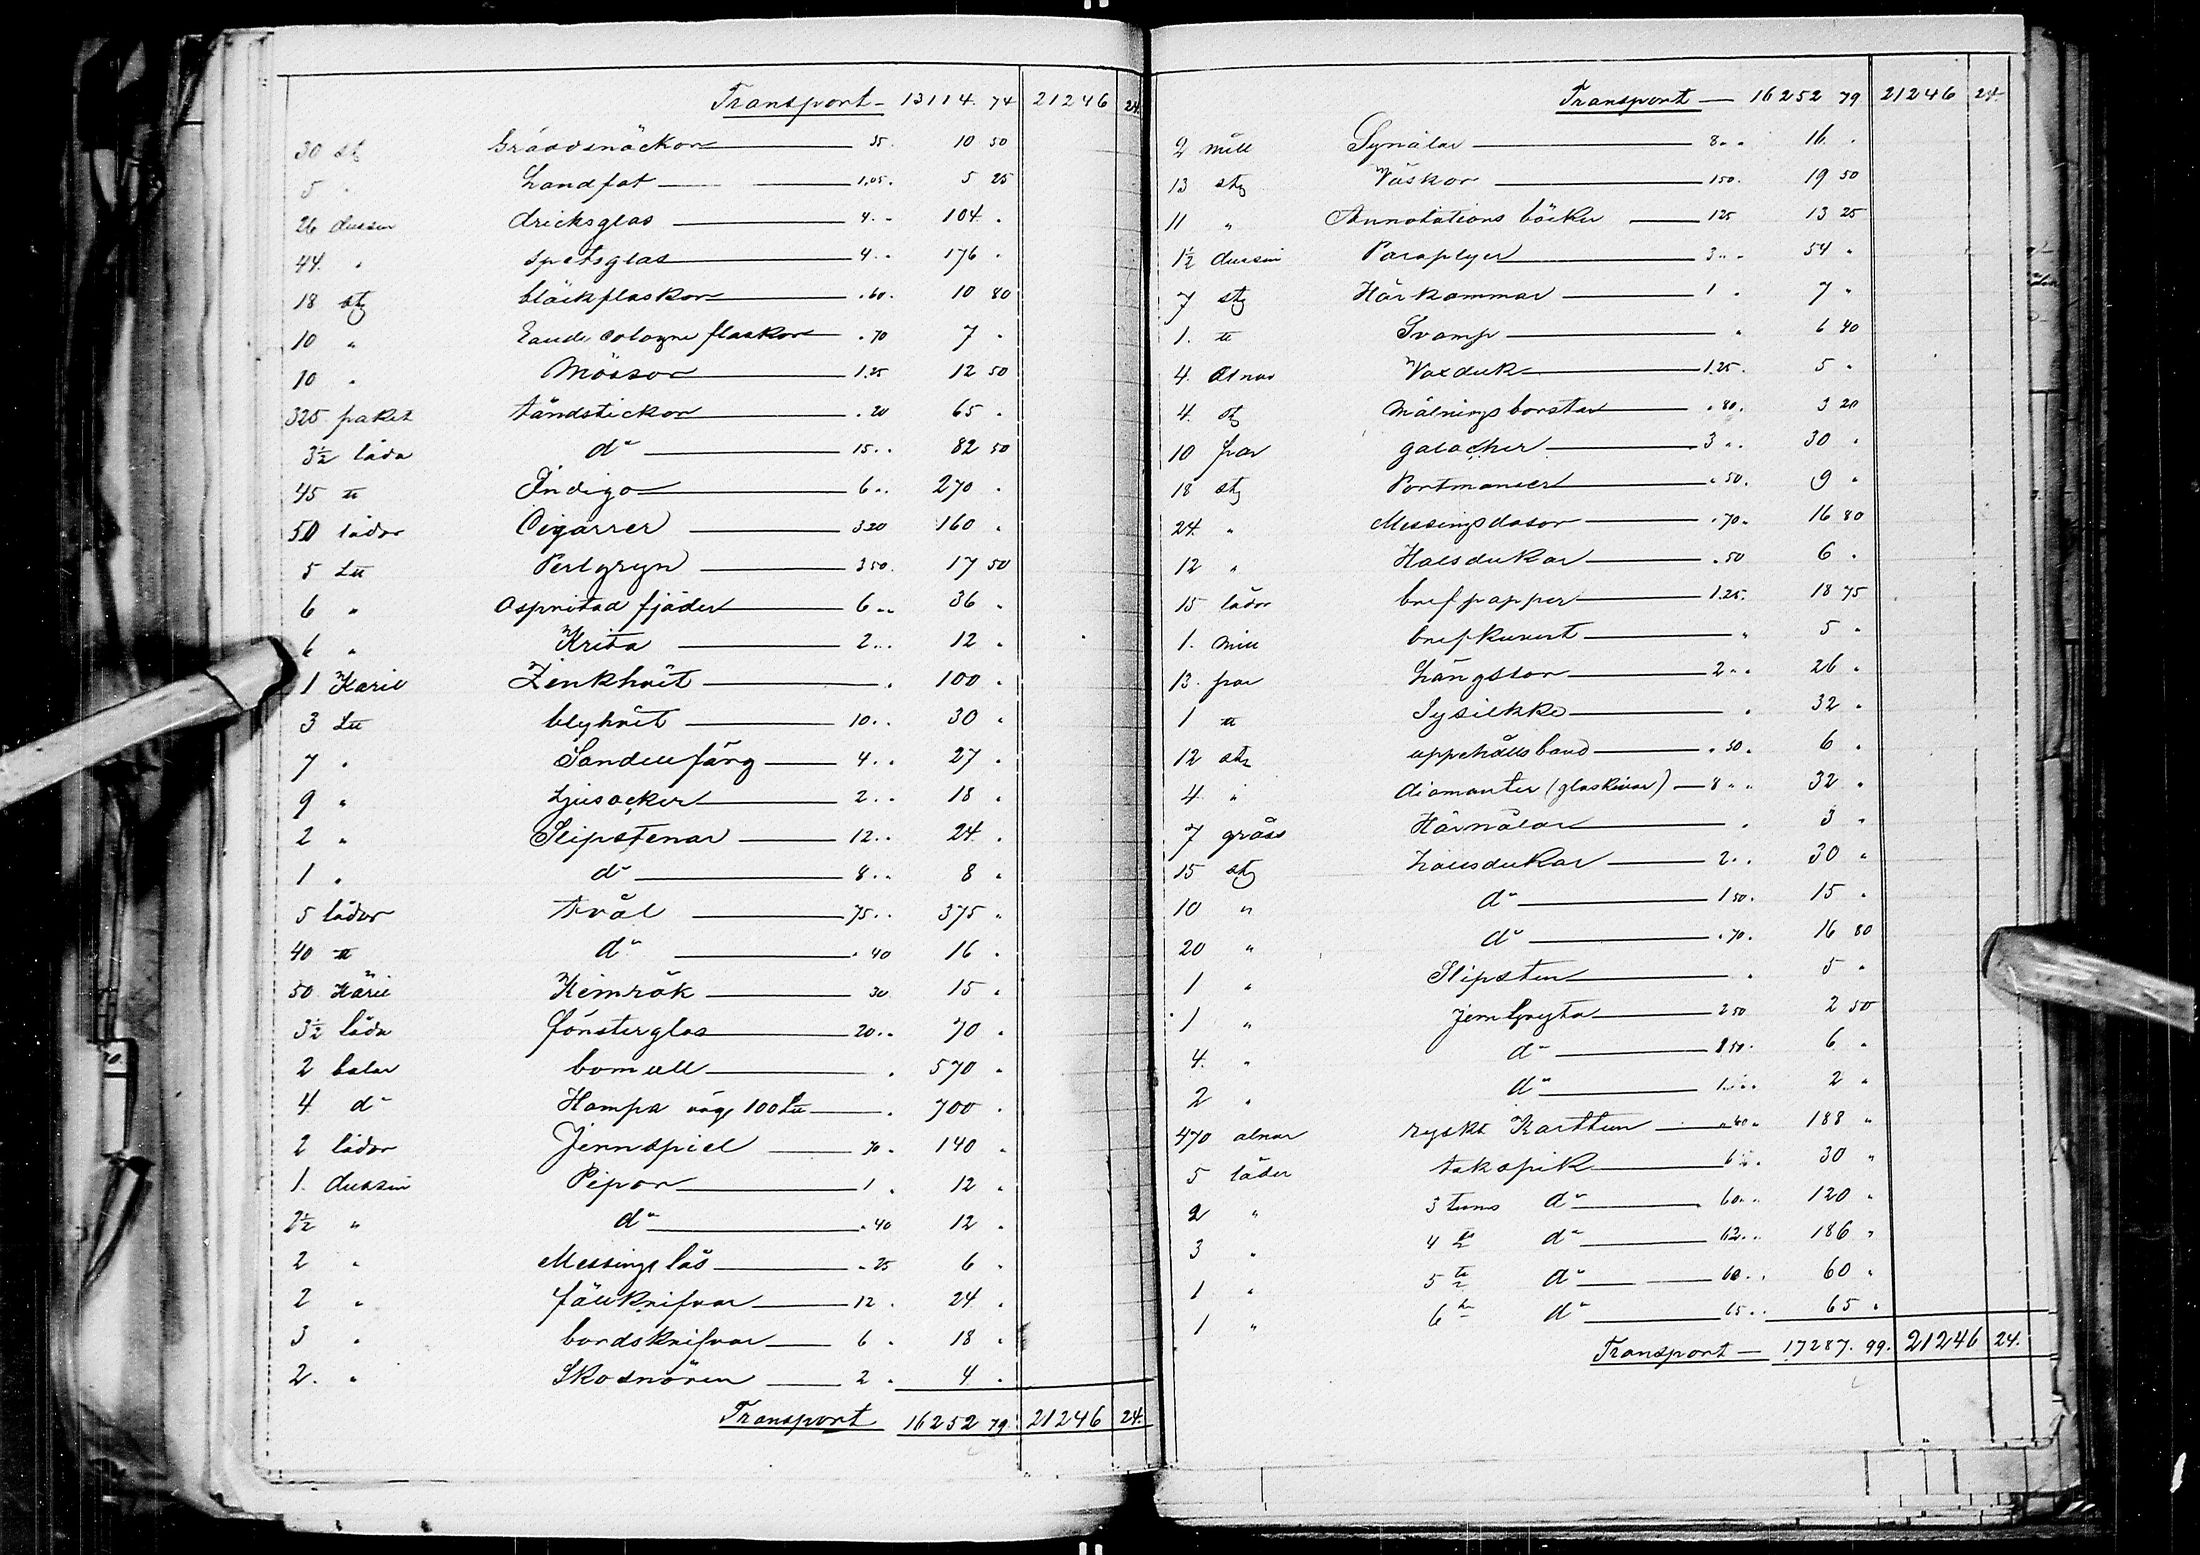 Transport – 13114. 74 21246 24.
30 stg Gräddsnäckor 35. 10 50
5 " handfat 1.05. 5 25
26 dussin dricksglas 4. " 104. "
44. " spetsglas 4. " 176 "
18 stg bläckflaskor . 60. 10 80
10 " Eau de cologne flaskor . 70 7 "
10 " Mössor 1.25 12 50
325 paket tändstickor . 20 65 "
3½ låda d:o 15. " 82 50
45 ℔ Indigo 6 " 270 "
50 lådor Cigarrer 3 20 160 "
5 L℔ Perlgryn 3 50. 17 50
6 " Ospritad fjäder 6 " 36 "
6 " Krita 2 " 12 "
1 Käril Zinkhvit " 100 "
3 L℔ blyhvit 10 " 30 "
7 " Sandell färg 4. " 27 "
9 " Ljusacker 2 " 18 "
2 " Slipstenar 12 " 24. "
1 " d:o 8 " 8 "
5 lådor tvål 75 " 375 "
40 ℔ d:o . 40 16 "
50 Käril Kimrök 30 15 "
3½ låda fönsterglas 20 " 70 "
2 balar bomull " 570 "
4 d:o Hampa väg 100 L℔ " 700 "
2 lådor Jernspiel 70 " 140 "
1. dussin Pipor 1 " 12 "
2½ " d:o . 40 12 "
2 " Messings lås . 25 6 "
2 " fällknifvar 12 " 24 "
3 " bordsknifvar 6 " 18 "
2. " Skosnören 2 " 4 "
Transport 16252 79. 21246 24.
Transport — 16252 79. 21246 24.
2 mill Synålar 8 " 16. "
13 stg Väskor 150. 19 50
11 " Annotations böcker 125 13 25
1½ dussin Paraplyer 3 " 54 "
7 stg Hårkammar 1 " 7 "
1. ℔ Svamp " 6 40
4. alnar Vaxduk 1.25. 5 "
4. stg Målningsborstar . 80. 3 20
10 par galocher 3 " 30 "
18 stg Portmonäer . 50. 9 "
24. " Messingsdosor . 70. 16 80
12 " Halsdukar . 50 6 "
15 lådor brefpapper 1.25. 18 75
1. mill brefkuvert " 5 "
13. par Långstor 2 " 26 "
1 ℔ Sysilkke " 32 "
12 stg uppehålls band . 50. 6 "
4 " diamanter (glaskivar) 8 " 32 "
7 gråss Hårnålar " 3 "
15 stg halsdukar 2 " 30 "
10 " d:o 1 50. 15 "
20 " d:o . 70. 16 80
1 " Slipsten " 5 "
1 " Jern Gryta 2 50 2 50
4. " d:o 1 50. 6 "
2 " d:o 1. " 2 "
470 alnar ryskt Karttun . 40. 188 "
5 lådor takspik 6 " 30 "
2 " 3 tums d:o 60 " 120 "
3 " 4 d:o 62 " 186 "
1 " 5 d:o 60 " 60 "
1 " 6 d:o 65 " 65 "
Transport — 17287. 99. 21246 24.